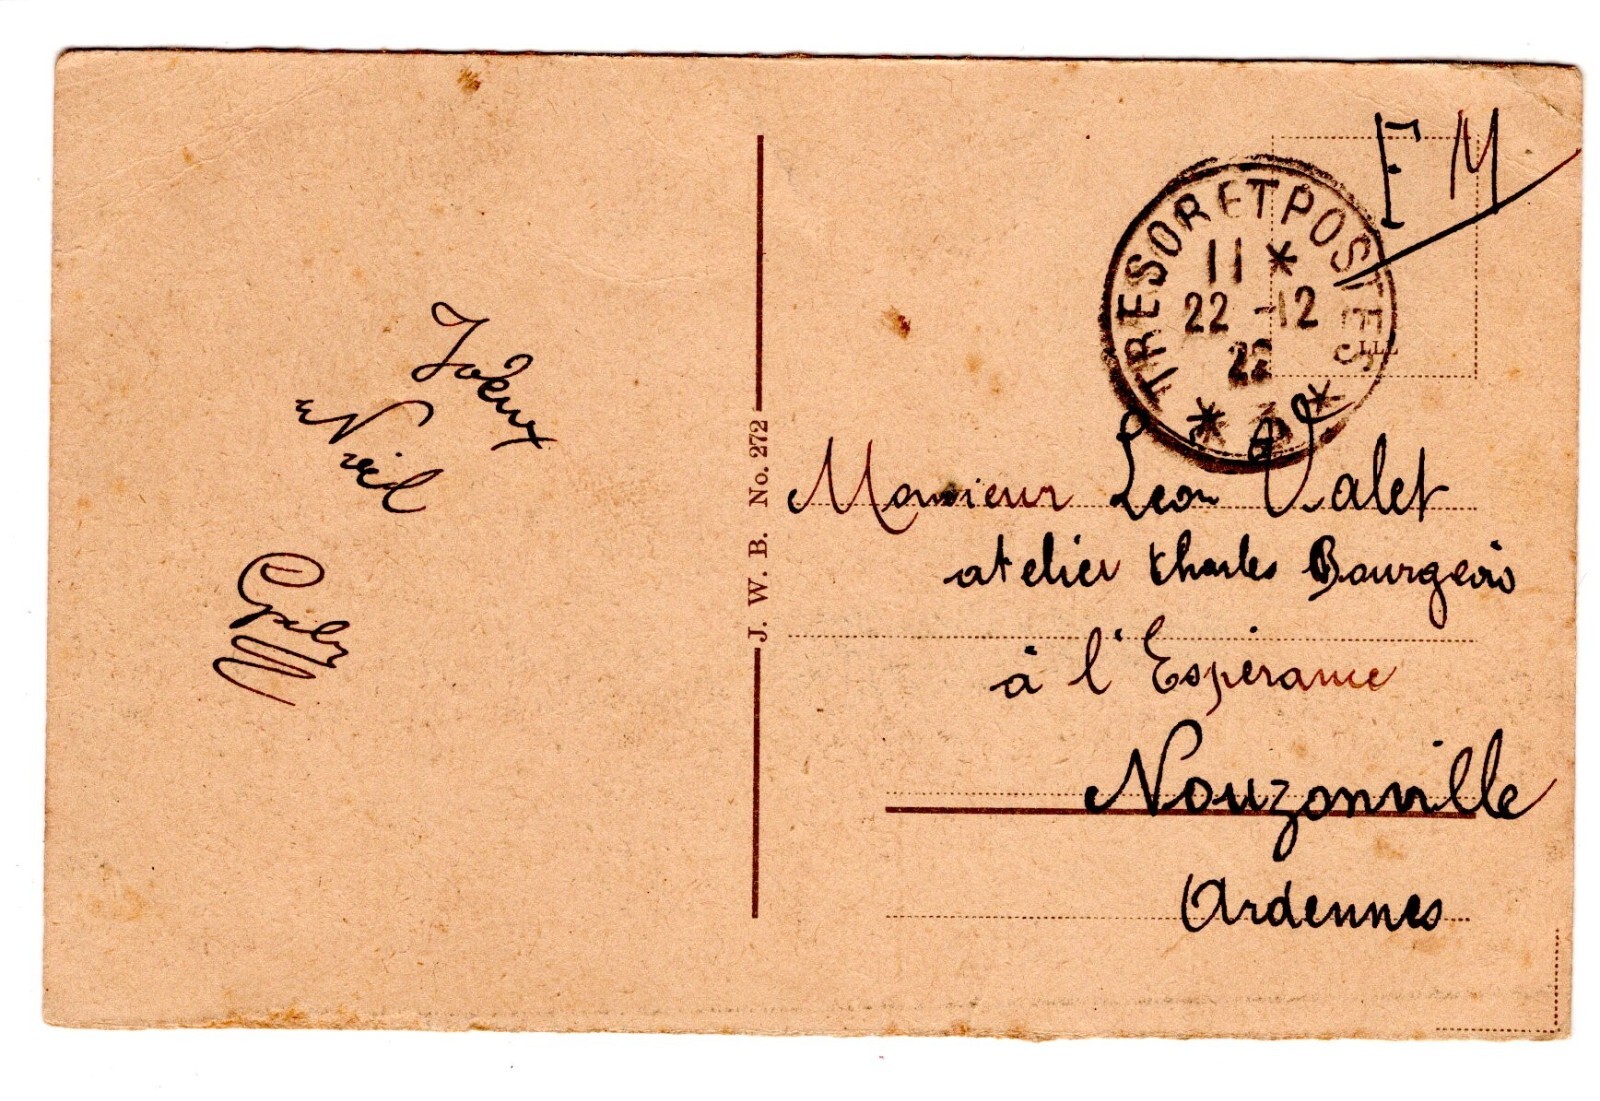 F M
TRESOR ET POSTES
11 *
22 -12
22
* *
LLL
Joeux
Noël
J. W. B. No. 272
Monsieur Léon Valet
atelier Charles Bourgeois
à l'Espérance
Nouzonville
Ardennes